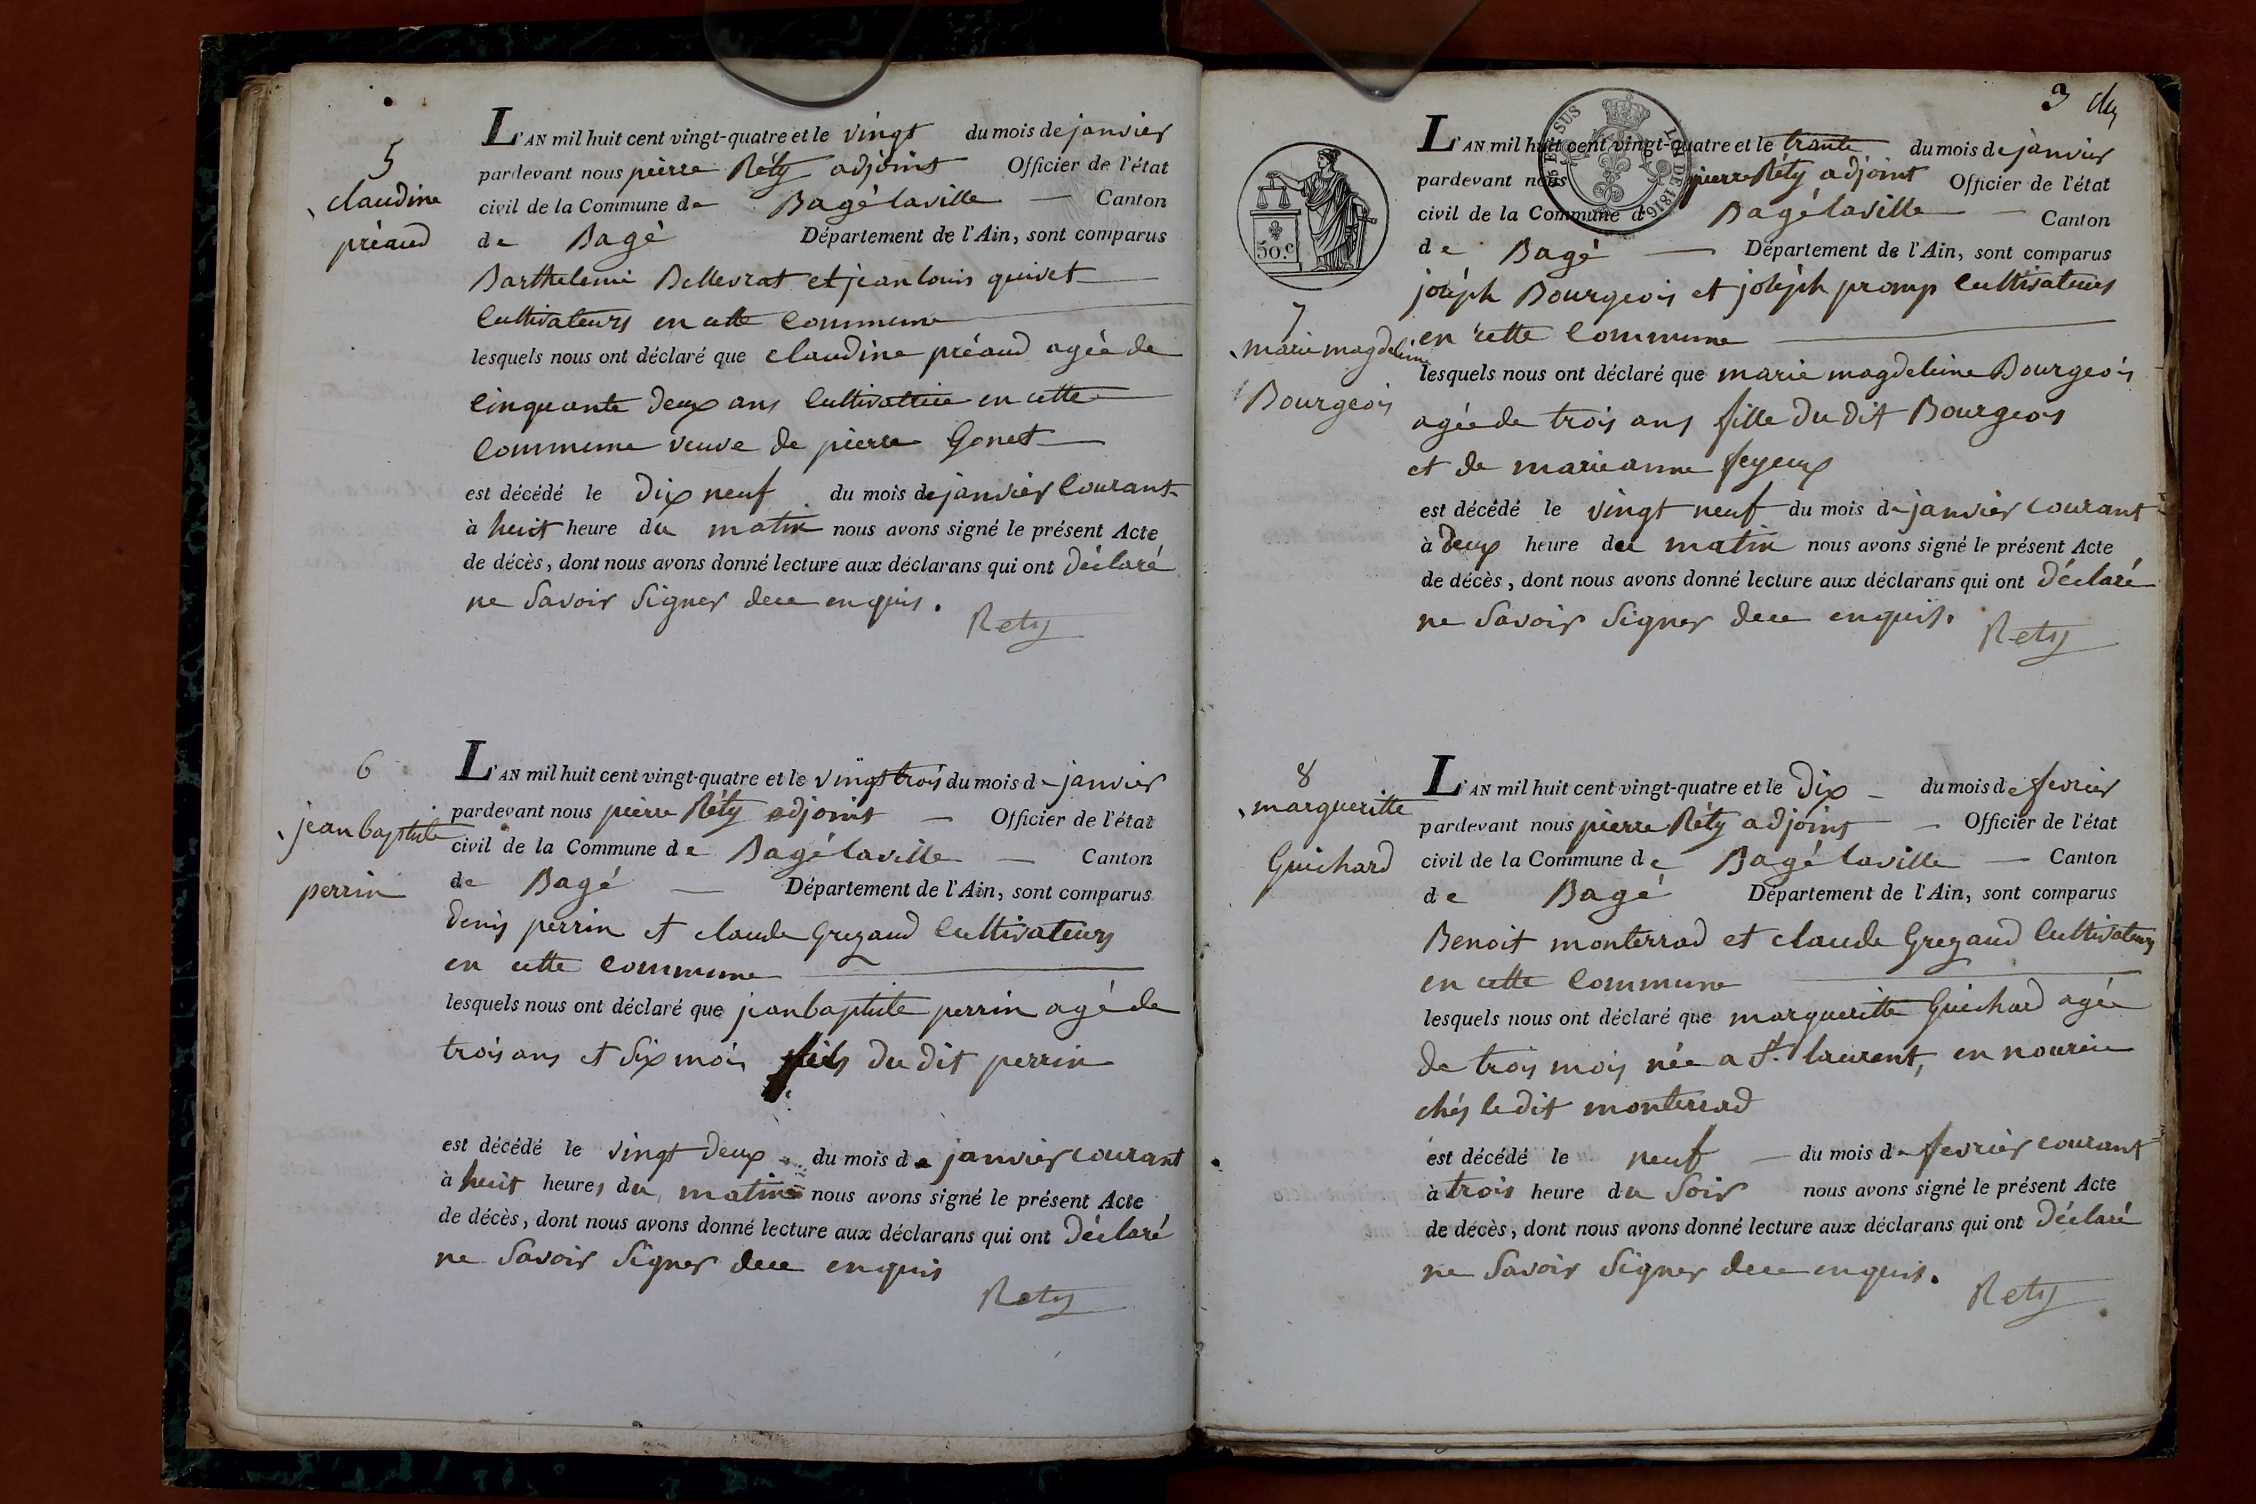 5
claudine
préaud
L'AN mil huit cent vingt-quatre et le vingt du mois de janvier
pardevant nous pierre Réty adjoint Officier de l'état
civil de la Commune de Bagé laville — Canton
de Bagé Département de l'Ain, sont comparus
Barthelemi Bellevrat et jean louis quivet
Cultivateurs en cette Commune
lesquels nous ont déclaré que claudine préaud agée de
Cinquante deux ans Cultivatrice en cette
Commune veuve de pierre Gonet
est décédé le dix neuf du mois de janvier Courant
à huit heure du matin nous avons signé le présent Acte
de décès, dont nous avons donné lecture aux déclarans qui ont déclaré
ne Savoir Signer dece enquis.
Rety
6
jean baptiste
perrin
L'AN mil huit cent vingt-quatre et le vingt trois du mois de janvier
pardevant nous pierre Réty adjoint — Officier de l'état
civil de la Commune de Bagé laville — Canton
de Bagé — Département de l'Ain, sont comparus
denis perrin et claude Gregaud Cultivateurs
en cette Commune
lesquels nous ont déclaré que jean baptiste perrin agé de
trois ans et Six mois fils du dit perrin
est décédé le vingt deux du mois de janvier courant
à huit heures du matin nous avons signé le présent Acte
de décès, dont nous avons donné lecture aux déclarans qui ont déclaré
ne Savoir Signer dece enquis
Rety
3
50.c
LOI DE 1816
7
marie magdeleine
Bourgeois
L'AN mil huit cent vingt-quatre et le trante du mois de janvier
pardevant nous pierre Réty adjoint Officier de l'état
civil de la Commune de Bagé laville — Canton
de Bagé — Département de l'Ain, sont comparus
joseph Bourgeois et joseph promp Cultivateurs
en cette Commune
lesquels nous ont déclaré que marie magdeleine Bourgeois
agée de trois ans fille du dit Bourgeois
et de marie anne feyeux
est décédé le vingt neuf du mois de janvier courant
à deux heure du matin nous avons signé le présent Acte
de décès, dont nous avons donné lecture aux déclarans qui ont déclaré
ne Savoir Signer dece enquis.
Rety
8
margueritte
Guichard
L'AN mil huit cent vingt-quatre et le dix du mois de fevrier
pardevant nous pierre Réty adjoint — Officier de l'état
civil de la Commune de Bagé laville — Canton
de Bagé Département de l'Ain, sont comparus
Benoit monterrad et claude Gregaud Cultivateurs
en cette Commune
lesquels nous ont déclaré que margueritte Guichard agée
de trois mois née a St. laurent, en nourice
chés le dit monterrad
est décédé le neuf — du mois de fevrier courant
à trois heure du Soir nous avons signé le présent Acte
de décès, dont nous avons donné lecture aux déclarans qui ont déclaré
ne Savoir Signer dece enquis.
Rety